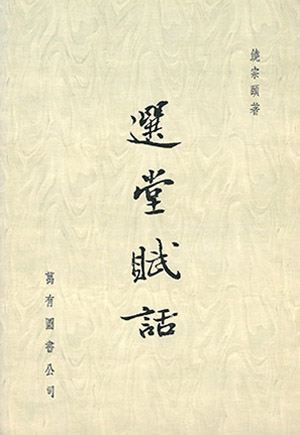 饒宗頤著
選堂賦話
萬有圖書公司